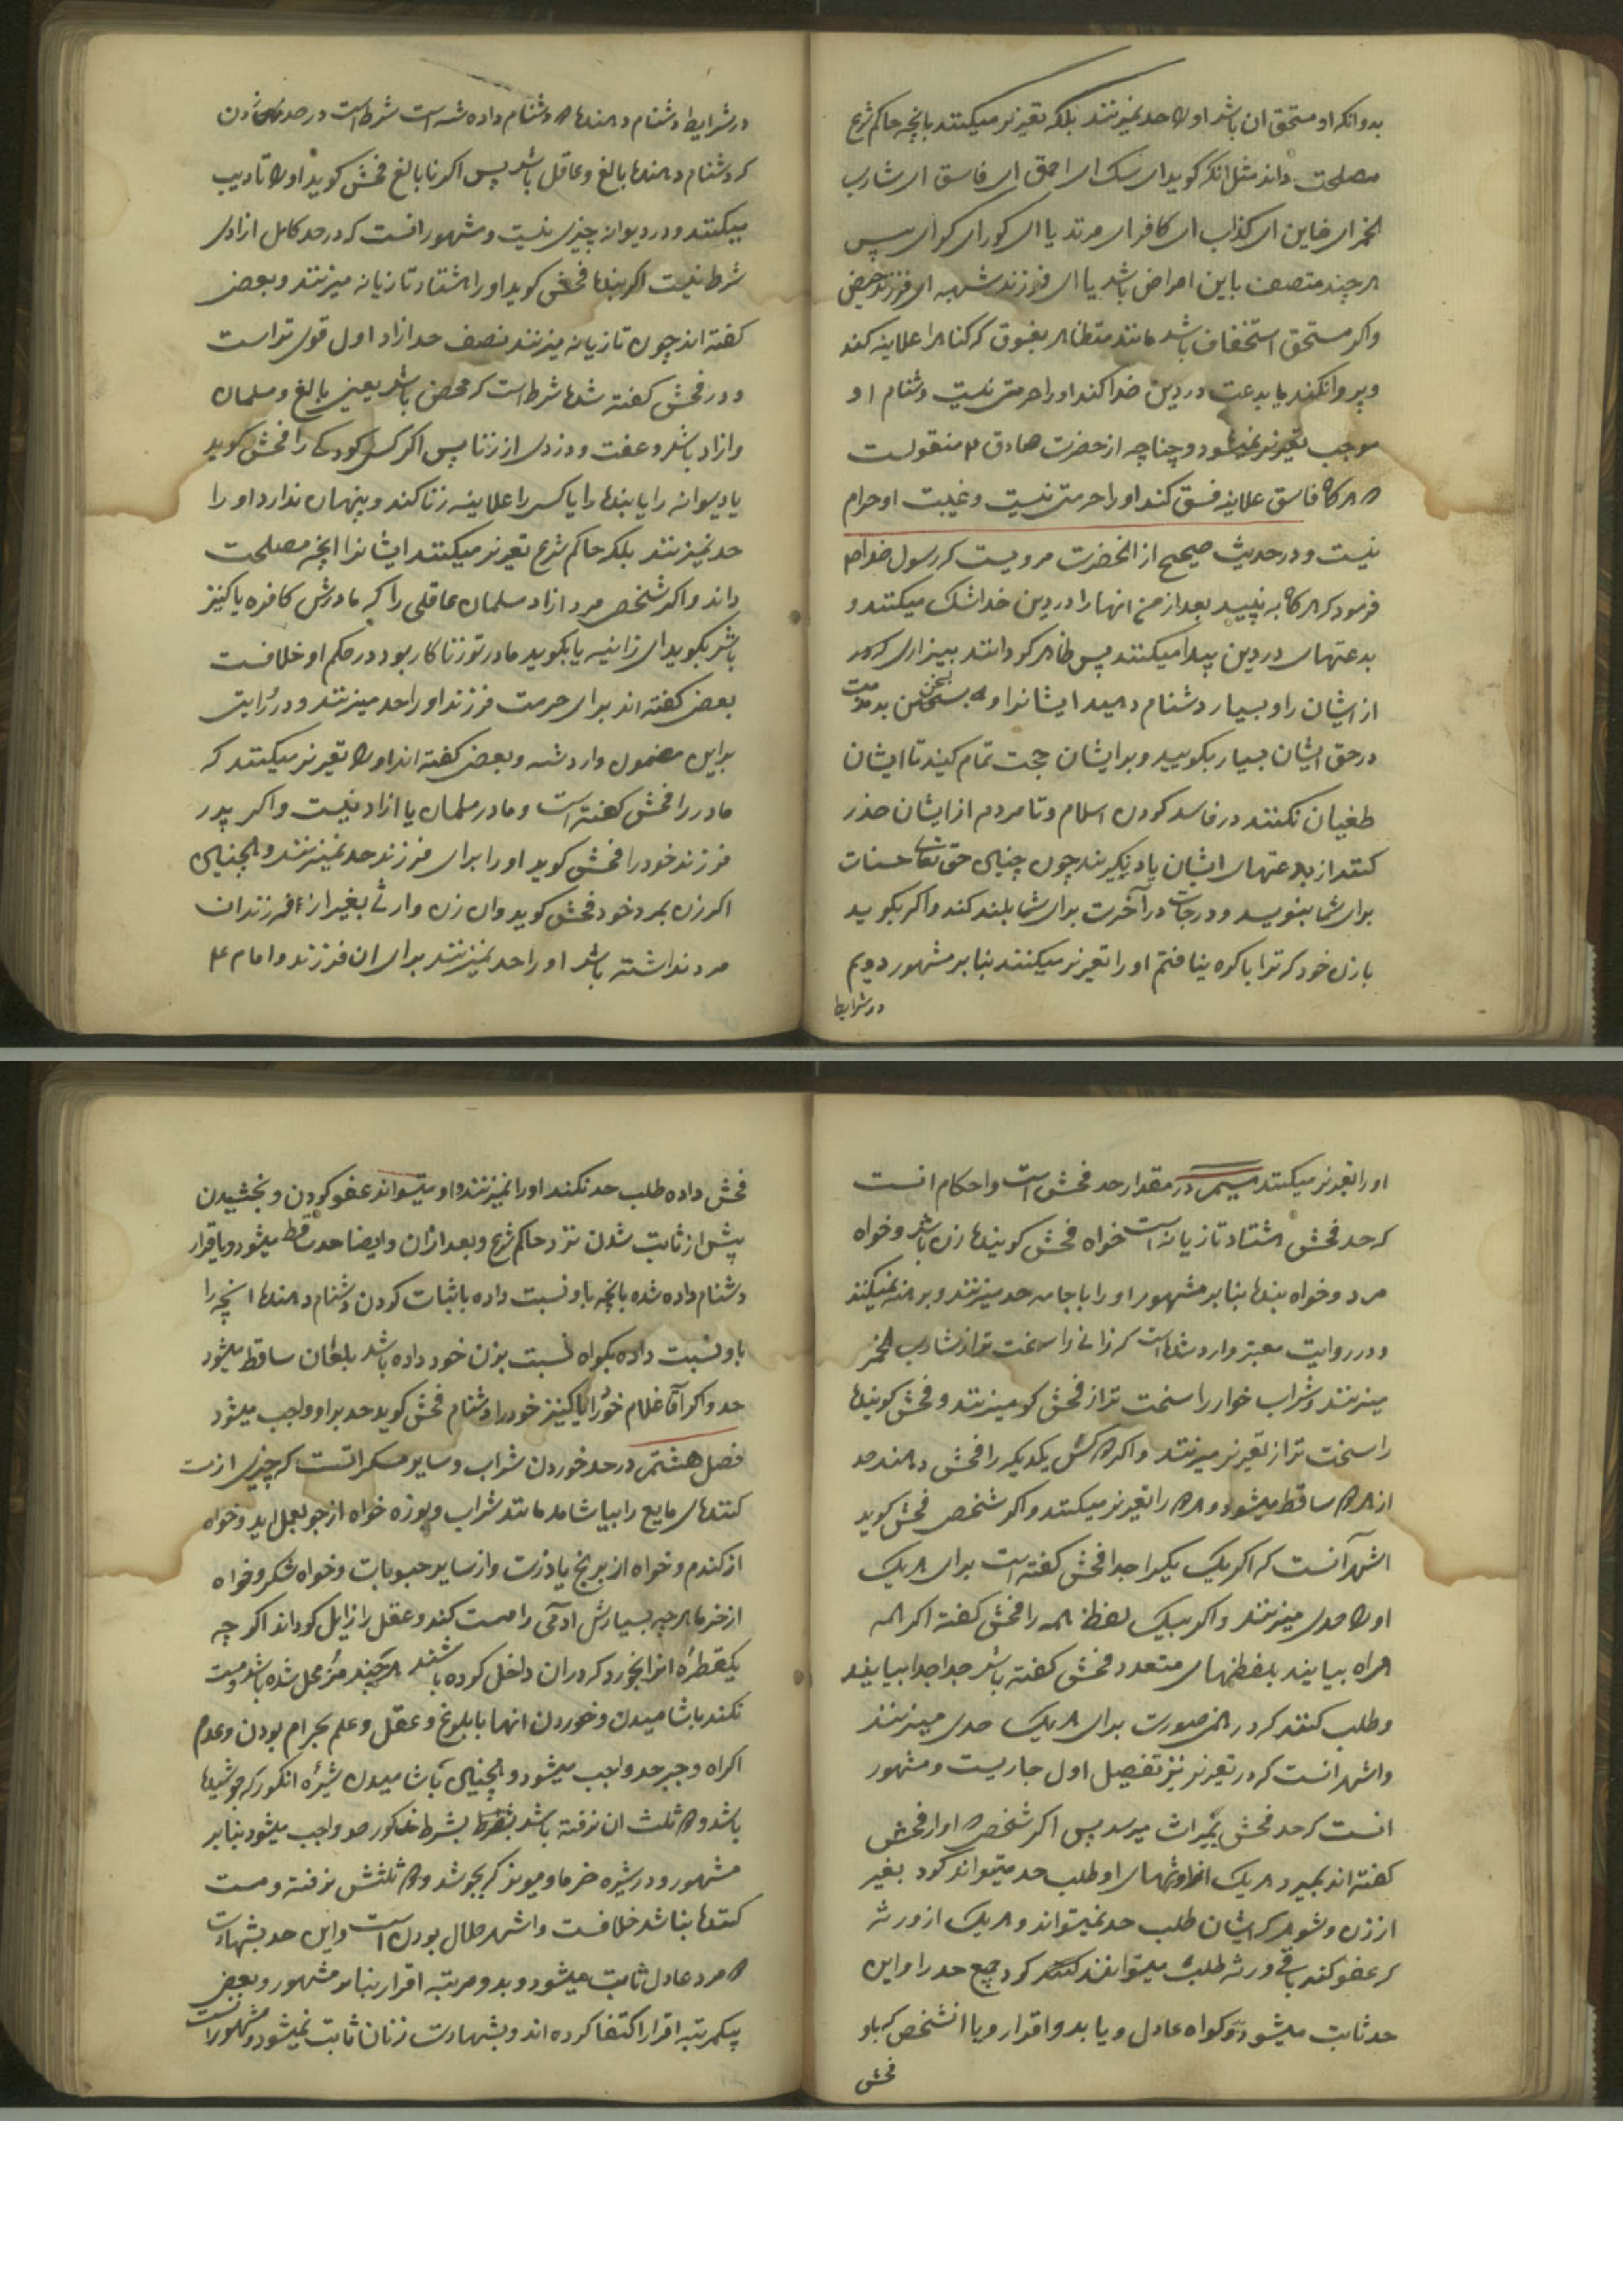 بدو انکه او مستحق ان باشد او را حد نمیزنند بلکه تعزیر میکنند بانچه حاکم شرع
مصلحت داند مثل انکه کوید ای سک ای احمق ای فاسق ای شارب
الخمر ای خاین ای کذاب ای کافر ای مرتد یا ای کور ای کر ای پیس
هر چند متصف باین امراض باشد یا ای فرزند شبهه ای فرزند حیض
واکر مستحق استخفاف باشد مانند متظاهر بفسوق که کناه را علانیه کند
وپروا نکند یا بدعت در دین خدا کند او را حرمتی نیست دشنام او
موجب تعزیر نمیشود وچناچه از حضرت صادق ع منقولست
هرکاه فاسق علانیه فسق کند او را حرمتی نیست وغیبت او حرام
نیست ودر حدیث صحیح از انحضرت مرویست که رسول خدا ص
فرمود که هرکاه به بینید بعد از من انها را در دین خدا شک میکنند و
بدعتهای در دین پیدا میکنند پس ظاهر کردانند بیزاری
از ایشان را وبسیار دشنام دهید ایشانرا و سخن بد
در حق ایشان بسیار بکویید وبر ایشان حجت تمام کنید تا ایشان
طغیان نکنند در فاسد کردن اسلام وتا مردم از ایشان حذر
کنند از بدعتهای ایشان یاد نکیرند چون چنین حق تعالی حسنات
برای شما بنویسد ودرجات در آخرت برای شما بلند کند واکر بکوید
بازن خود که ترا باکره نیافتم او را تعزیر میکنند بنابر مشهور دویم
در شرایط
در شرایط دشنام دهنده و دشنام داده شده است شرطست در حد زدن
که دشنام دهنده بالغ وعاقل باشد پس اکر نابالغ فحش کوید او را تادیب
میکنند ودر دیوانه چیزی نیست ومشهور انست که در حد کامل ازادی
شرط نیست اکر بنده فحش کوید او را هشتاد تازیانه میزنند وبعضی
کفته اند چهل تازیانه میزنند نصف حد ازاد اول قوی تر است
ودر فحش کفته شده شرط است که محصن باشد یعنی بالغ ومسلمان
وازاد باشد وعفت ورزد از زنا پس اکر کسی کودکی را فحش کوید
یا دیوانه را یا بنده را یا کسی را علانیه زنا کند وپنهان ندارد او را
حد نمیزنند بلکه حاکم شرع تعزیر میکنند ایشانرا انچه مصلحت
داند واکر شخص مرد ازاد مسلمان عاقلی را که مادرش کافره یا کنیز
باشد بکوید ای زانیه یا بکوید مادر تو زناکار بود در حکم او خلافست
بعضی کفته اند برای حرمت فرزند او را حد میزنند ودر روایت
براین مضمون وارد شده وبعضی کفته اند او را تعزیر میکنند که
مادر را فحش کفته است ومادر مسلمان یا ازاد نیست واکر پدر
فرزند خود را فحش کوید او را برای فرزند حد نمیزنند وهمچنین
اکر زن بمرد خود فحش کوید وان زن وارثی بغیر از فرزندان
مرد نداشته باشد او را حد نمیزنند برای ان فرزند وامام ع
او را تعزیر میکنند سیم در مقدار حد فحش است واحکام انست
که حد فحش هشتاد تازیانه است خواه فحش کوینده زن باشد وخواه
مرد وخواه بنده بنابر مشهور او را با جامه حد میزنند وبرهنه نمیکنند
ودر روایت معتبر وارد شده است که زانی را سخت تر از شارب الخمر
میزنند وشراب خوار را سخت تر از فحش کو میزنند وفحش کوینده
را سخت تر از تعزیر میزنند واکر دو کس یکدیکر را فحش دهند حد
از هر دو ساقط میشود وهر دو را تعزیر میکنند واکر شخصی فحش کوید
اشهر آنست که اکر یک یک را جدا فحش کفته است برای هر یک
او را حدی میزنند واکر بیک لفظ همه را فحش کفته اکر همه
همراه بیایند بلفظهای متعدد فحش کفته باشد جدا جدا بیایند
وطلب کنند که در این صورت برای هر یک حدی میزنند
واشهر انست که در تعزیر نیز تفصیل اول جاریست ومشهور
انست که حد فحش بمیراث میرسد پس اکر شخص که او را فحش
کفته اند بمیرد هر یک از وارثهای او طلب حد میتواند کرد بغیر
از زن وشوهر که ایشان طلب حد نمیتواند وهر یک از ورثه
که عفو کند باقی ورثه طلب میتوانند کرد جمیع حد را واین
حد ثابت میشود بدو کواه عادل ویا بدو اقرار ویا انشخص که باو
فحش
فحش داده طلب حد نکند او را نمیزنند واو میتواند عفو کردن وبخشیدن
پیش از ثابت شدن نزد حاکم شرع وبعد از ان وایضا حد ساقط میشود وباقرار
دشنام داده شده بانچه باو نسبت داده باثبات کردن دشنام دهنده انچه را
باو نسبت داده بکواه نسبت بزن خود داده باشد بلعان ساقط میشود
حد واکر آقا غلام خود را یا کنیز خود را دشنام فحش کوید حد بر او واجب میشود
فصل هشتم در حد خوردن شراب وسایر مسکراتست که چیزی از مست
کننده های مایع را بیاشامد مانند شراب وبوزه خواه از جو بعمل اید وخواه
از کندم وخواه از برنج یا ذرت واز سایر حبوبات وخواه شکر وخواه
از خرما هرچه بسیارش ادمی را مست کند وعقل را زایل کرداند اکر چه
یکقطرهٔ انرا بخورد که در ان داخل کرده باشند هرچند مضمحل شده باشد ومست
نکند باشامیدن وخوردن انها با بلوغ وعقل وعلم بحرام بودن وعدم
اکراه وجبر حد واجب میشود وهمچنین آشامیدن شیرهٔ انکور که جوشیده
باشد ودو ثلث ان نرفته باشد بشرط مذکور حد واجب میشود بنابر
مشهور ودر شیره خرما ومویز که بجوشد ودو ثلثش نرفته ومست
کننده نباشد خلافست واشهر حلال بودن است واین حد بشهادت
دو مرد عادل ثابت میشود وبدو مرتبه اقرار بنابر مشهور وبعضی
بیکمرتبه اقرار اکتفا کرده اند وبشهادت زنان ثابت نمیشود ومشهور انست